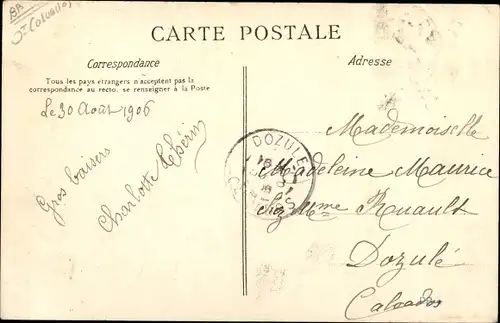 CARTE POSTALE
Correspondance
Tous les pays étrangers n'acceptent pas la
correspondance au recto, se renseigner à la Poste
Adresse
Le 30 Août 1906
Gros baisers
Charlotte
Mademoiselle
Madeleine Maurice
Mme Renault
Dozulé
Calvados
DOZULE